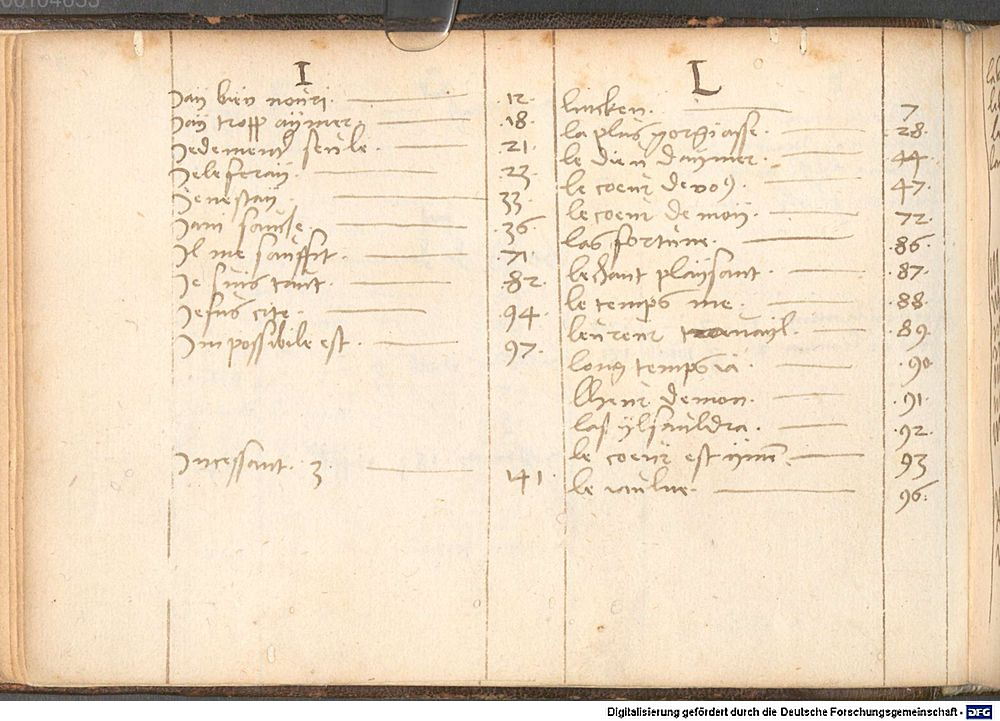 I
Jay bien nouri. 12.
Jay tropp aymer. 18.
Jedement seule. 21.
Jele feray. 23.
Jenestay 33.
Jam sauche 36.
Il me sauffit. 71.
Je suis tant. 82.
Jesus cite. 94.
Impossibile est. 97.
Incessant. 3. 141.
L
7
la plus gorgiasse. 28.
le dieu daymer. 44.
le coeur devo9. 47.
le coeur de moy. 72.
las fortune. 86.
lechant playsant. 87.
le temps me. 88.
leureur travayl. 89.
long temps ia. 90
lheur demon. 91.
las ylsauldra. 92.
le coeur est 93
le 96.
Digitalisierung gefördert durch die Deutsche Forschungsgemeinschaft - DFG